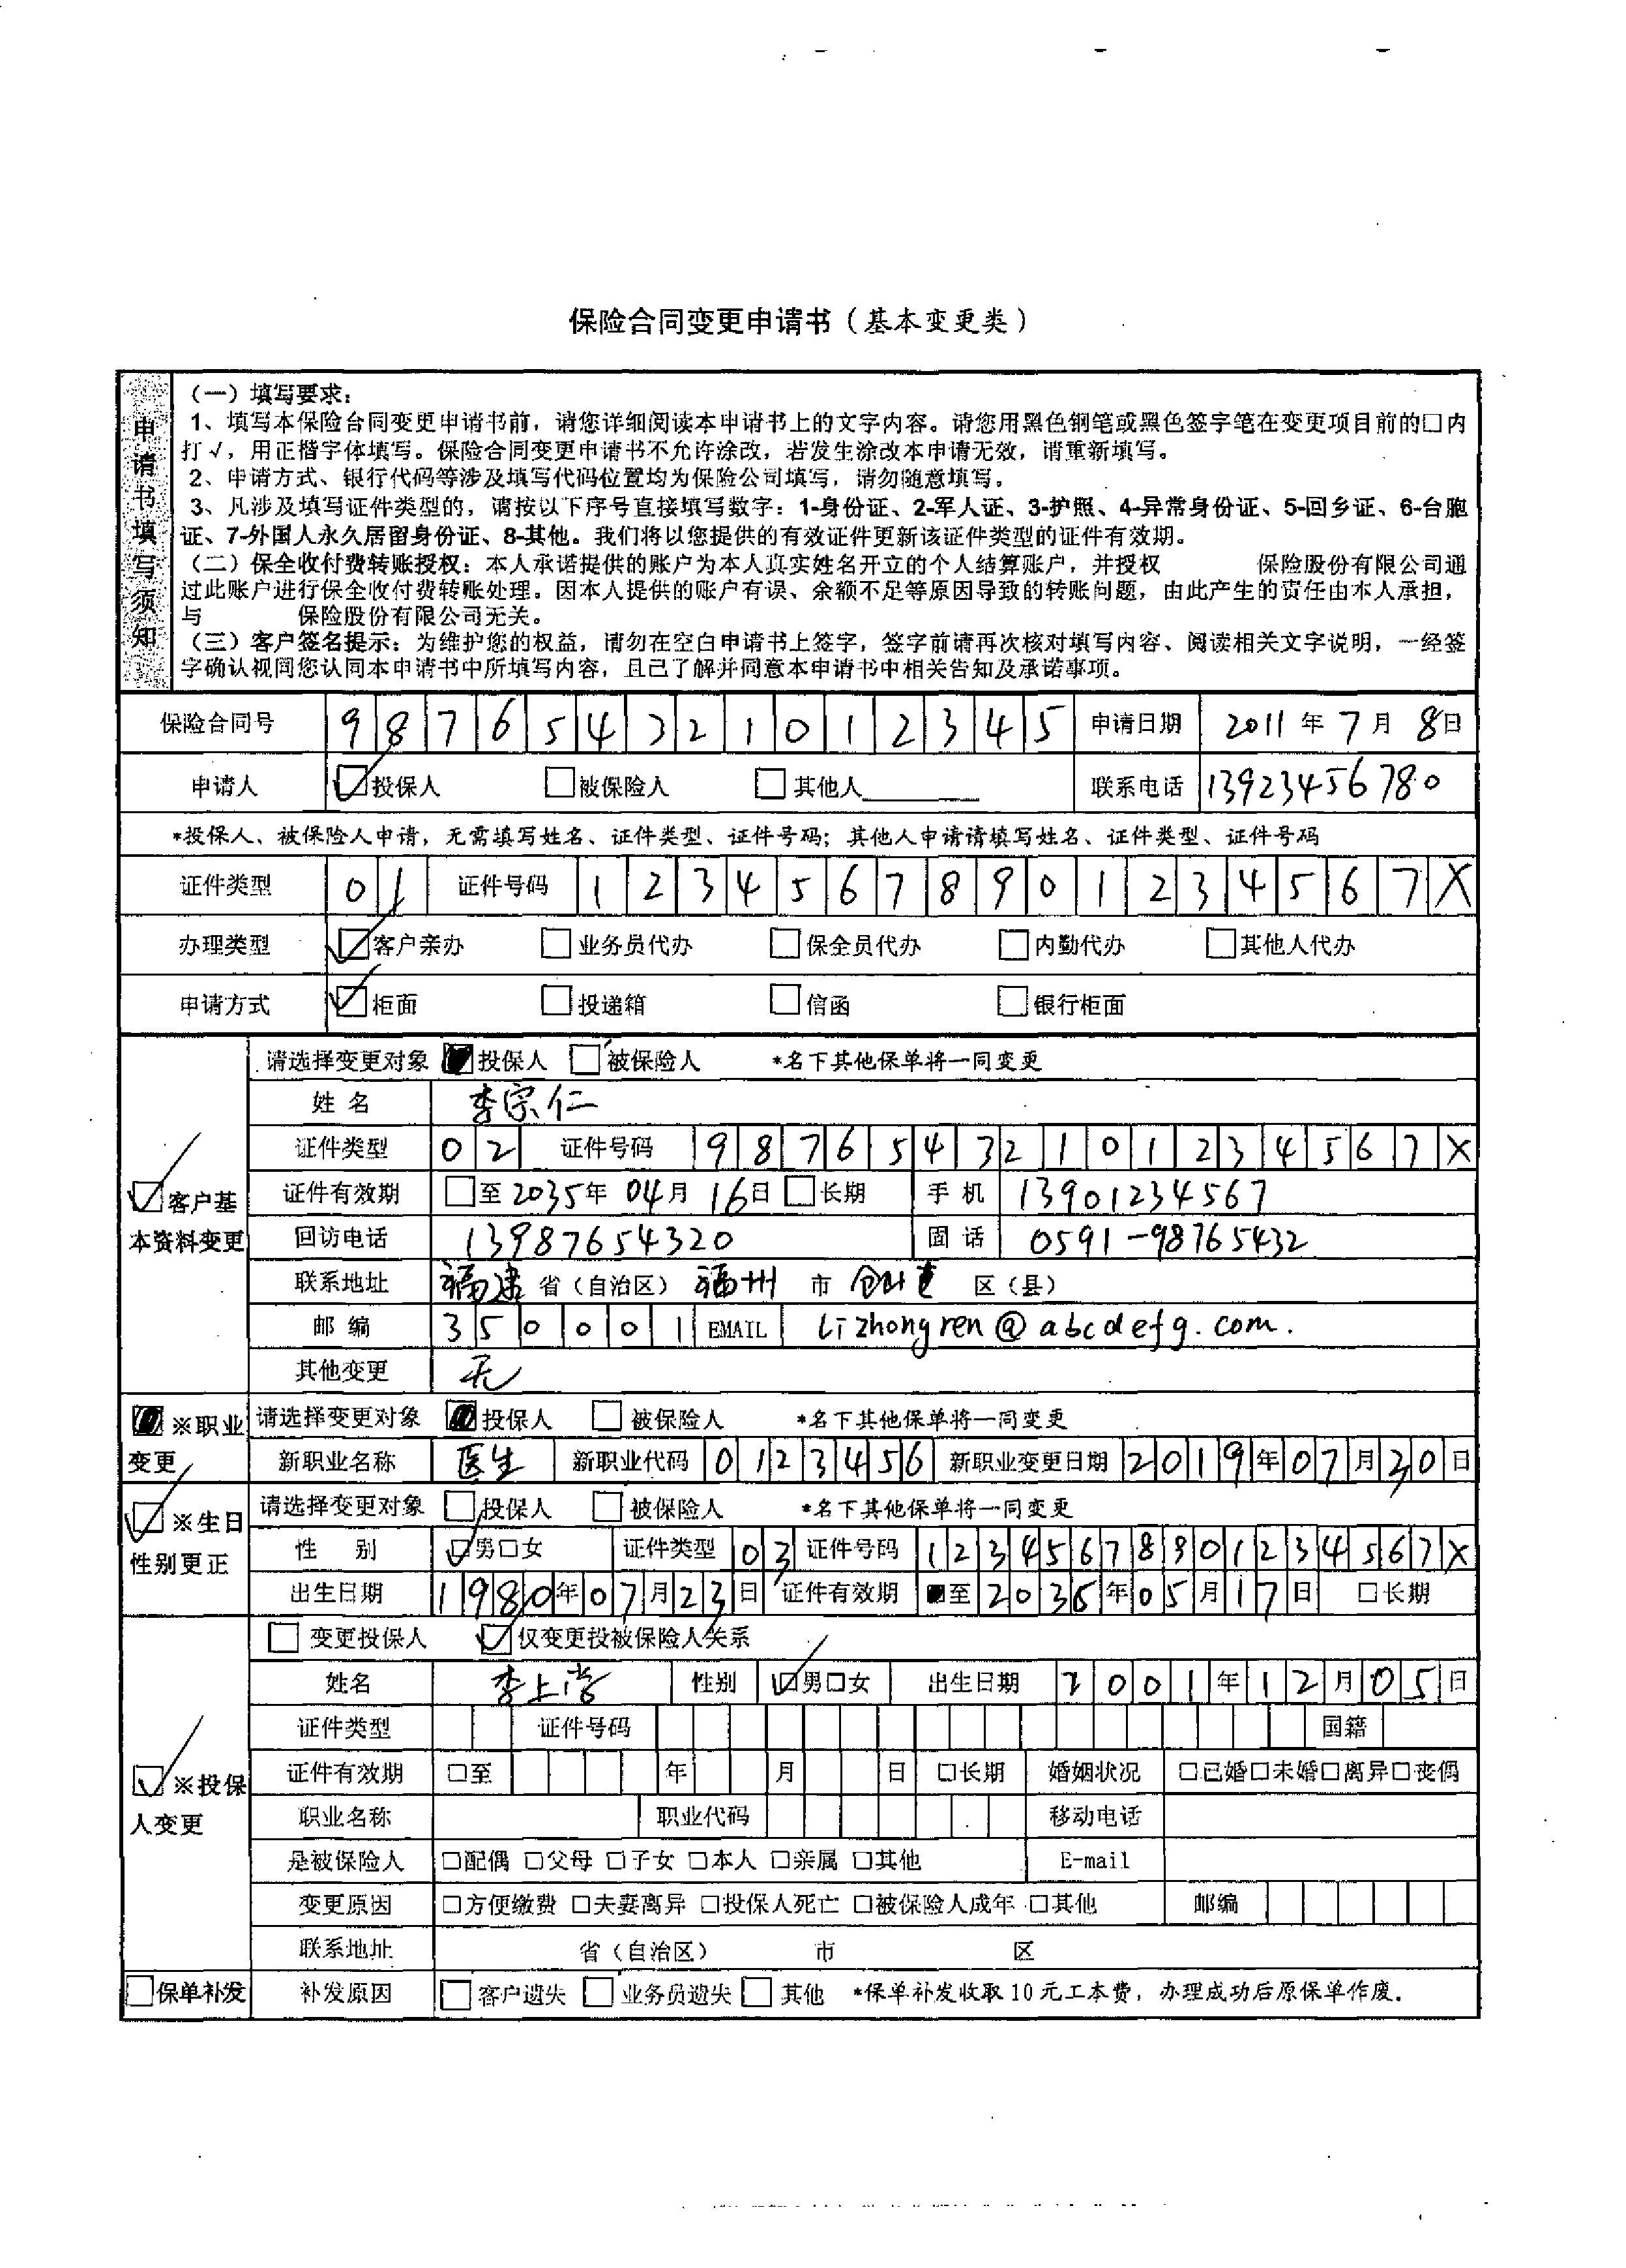 保险合同变更申请书（基本变更类）
申请书填写须知
（一）填写要求：
1、填写本保险合同变更申请书前，请您详细阅读本申请书上的文字内容。请您用黑色钢笔或黑色签字笔在变更项目前的□内
打√，用正楷字体填写。保险合同变更申请书不允许涂改，若发生涂改本申请无效，请重新填写。
2、申请方式、银行代码等涉及填写代码位置均为保险公司填写，请勿随意填写。
3、凡涉及填写证件类型的，请按以下序号直接填写数字：1-身份证、2-军人证、3-护照、4-异常身份证、5-回乡证、6-台胞
证、7-外国人永久居留身份证、8-其他。我们将以您提供的有效证件更新该证件类型的证件有效期。
（二）保全收付费转账授权：本人承诺提供的账户为本人真实姓名开立的个人结算账户，并授权 保险股份有限公司通
过此账户进行保全收付费转账处理。因本人提供的账户有误、余额不足等原因导致的转账问题，由此产生的责任由本人承担，
与 保险股份有限公司无关。
（三）客户签名提示：为维护您的权益，请勿在空白申请书上签字，签字前请再次核对填写内容、阅读相关文字说明，一经签
字确认视同您认同本申请书中所填写内容，且已了解并同意本申请书中相关告知及承诺事项。
保险合同号 987654321012345 申请日期 2011年7月8日
申请人 ☑投保人 □被保险人 □其他人______ 联系电话 13923456780
*投保人、被保险人申请，无需填写姓名、证件类型、证件号码；其他人申请请填写姓名、证件类型、证件号码
证件类型 01 证件号码 12345678901234567X
办理类型 ☑客户亲办 □业务员代办 □保全员代办 □内勤代办 □其他人代办
申请方式 ☑柜面 □投递箱 □信函 □银行柜面
☑客户基本资料变更
请选择变更对象 ■投保人 □被保险人 *名下其他保单将一同变更
姓名 李宗仁
证件类型 02 证件号码 98765432101234567X
证件有效期 □至2035年04月16日 □长期 手机 13901234567
回访电话 13987654320 固话 0591-98765432
联系地址 福建 省（自治区） 福州 市 区（县）
邮编 350001 EMAIL lizhongren@abcdefg.com.
其他变更 无
■※职业变更
请选择变更对象 ■投保人 □被保险人 *名下其他保单将一同变更
新职业名称 医生 新职业代码 0123456 新职业变更日期 2019年07月20日
☑※生日性别更正
请选择变更对象 □投保人 □被保险人 *名下其他保单将一同变更
性别 ☑男□女 证件类型 03 证件号码 12345678901234567X
出生日期 1980年07月23日 证件有效期 ■至2036年05月17日 □长期
☑※投保人变更
□变更投保人 ☑仅变更投被保险人关系
姓名 李上尝 性别 ☑男□女 出生日期 2001年12月05日
证件类型 证件号码 国籍
证件有效期 □至 年 月 日 □长期 婚姻状况 □已婚□未婚□离异□丧偶
职业名称 职业代码 移动电话
是被保险人 □配偶 □父母 □子女 □本人 □亲属 □其他 E-mail
变更原因 □方便缴费 □夫妻离异 □投保人死亡 □被保险人成年 □其他 邮编
联系地址 省（自治区） 市 区
□保单补发 补发原因 □客户遗失 □业务员遗失 □其他 *保单补发收取10元工本费，办理成功后原保单作废。